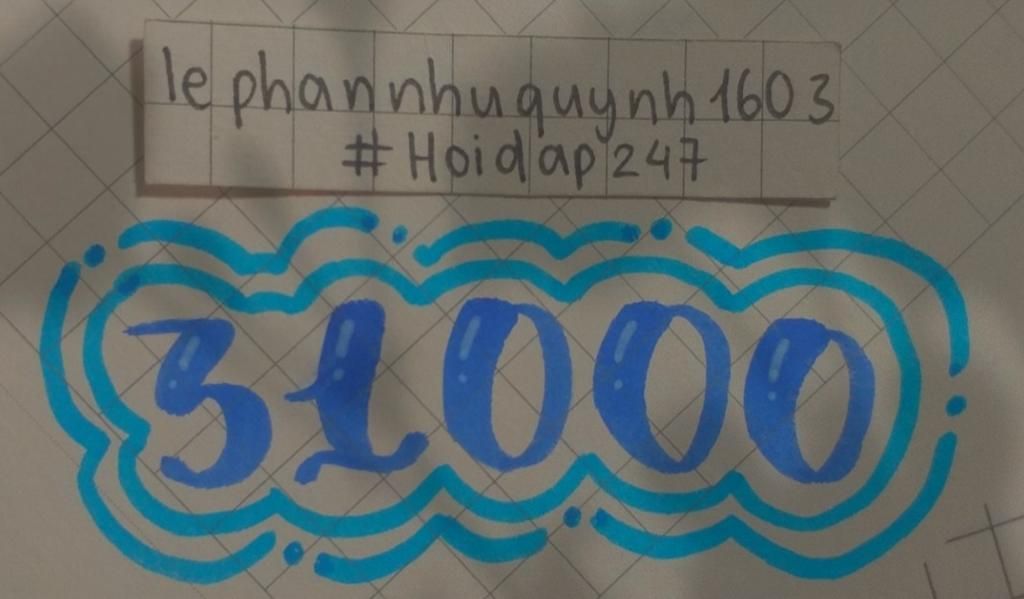 lephannhuquynh1603
#Hoidap247
31000